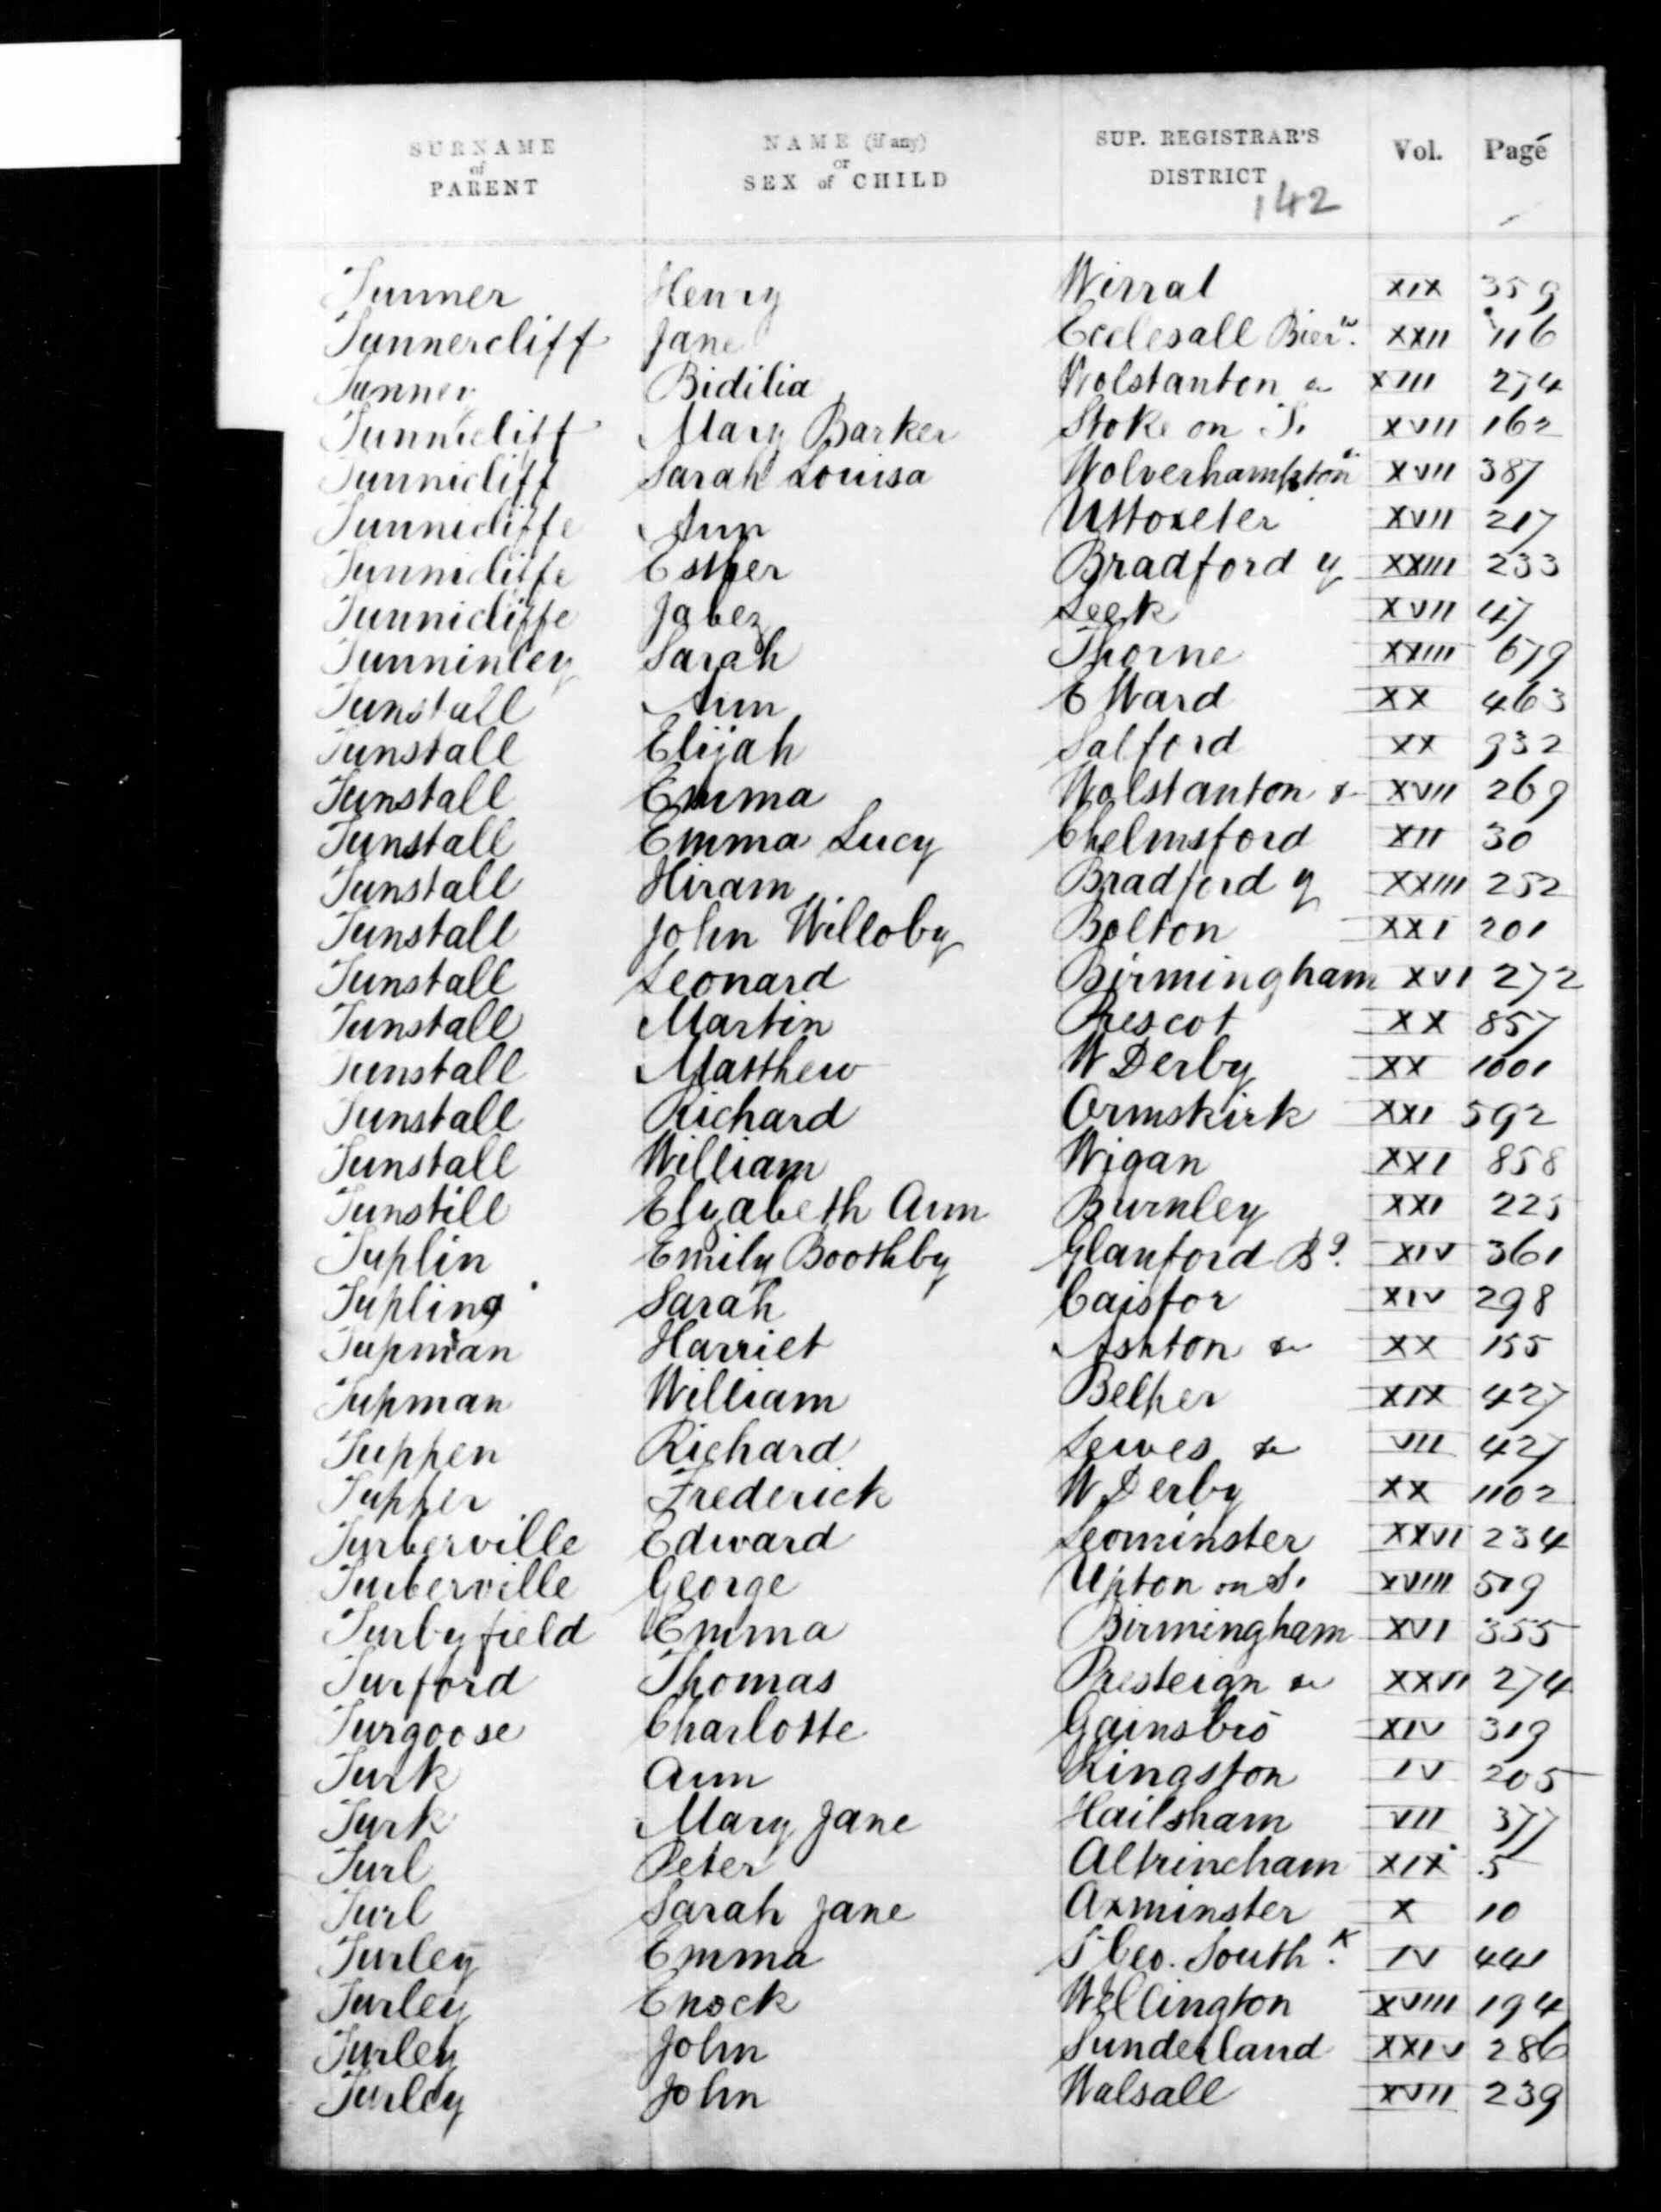 SURNAME of PARENT NAME (if any) or SEX of CHILD SUP. REGISTRAR'S DISTRICT Vol. Page
142
Tunner Henry Wirral XIX 359
Tunnercliff Jane Ecclesall Bierw. XXII 116
Tunney Bidilia Wolstanton & XVII 274
Tunnicliff Mary Barker Stoke on T. XVII 162
Tunnicliff Sarah Louisa Wolverhampton XVII 387
Tunnicliffe Ann Uttoxeter XVII 217
Tunnicliffe Esther Bradford Y XXIII 233
Tunnicliffe Jabez Leek XVII 47
Tunninley Sarah Thorne XXIII 679
Tunstall Ann E Ward XX 463
Tunstall Elijah Salford XX 932
Tunstall Emma Wolstanton & XVII 269
Tunstall Emma Lucy Chelmsford XII 30
Tunstall Hiram Bradford Y XXIII 252
Tunstall John Willoby Bolton XXI 201
Tunstall Leonard Birmingham XVI 272
Tunstall Martin Prescot XX 857
Tunstall Matthew W Derby XX 1001
Tunstall Richard Ormskirk XXI 592
Tunstall William Wigan XXI 858
Tunstill Elizabeth Ann Burnley XXI 225
Tuplin Emily Boothby Glanford Bg. XIV 361
Tupling Sarah Caistor XIV 298
Tupman Harriet Ashton & XX 155
Tupman William Belper XIX 427
Tuppen Richard Lewes & VII 427
Tupper Frederick W Derby XX 1102
Turberville Edward Leominster XXVI 234
Turberville George Upton on S. XVIII 519
Turbyfield Emma Birmingham XVI 355
Turford Thomas Presteign & XXVI 274
Turgoose Charlotte Gainsbro XIV 319
Turk Ann Kingston IV 205
Turk Mary Jane Hailsham VII 377
Turl Peter Altrincham XIX 5
Turl Sarah Jane Axminster X 10
Turley Emma St Geo. Southk. IV 441
Turley Enock Wellington XVIII 194
Turley John Sunderland XXIV 286
Turley John Walsall XVII 239